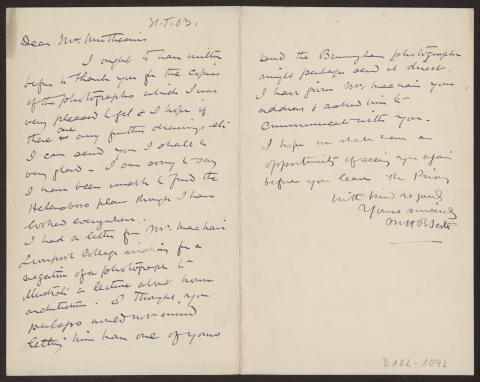 31.I.03.
Dear Mr. Muthesius
I ought to have written
before to thank you for the copies
of the photographs which I was
very pleased to get & I hope if
there are any further drawings etc
I can send you I shall be
very glad – I am sorry to say
I have been unable to find the
Helensboro plan though I have
looked everywhere.
I had a letter from Mr.
Liverpool College wishing for a
negative of a photograph to
illustrate a lecture about house
architecture. I thought you
perhaps would not mind
letting him have one of yours
send the Birmingham photographs
might perhaps send it direct.
I have given Mr. your
address & asked him to
communicate with you.
I hope we shall have an
opportunity of seeing you again
before you leave The Priory
With kind regards
Yours sincerely
MHBScott
D102-1092